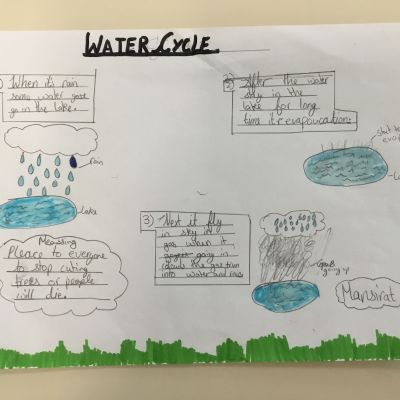 WATER CYCLE
1) When it's rain
some water
go in the lake.
rain
lake
2) After the water
stay in the
lake for long
time it's
lake
3) Next it fly
in sky in
gas when it
going in
clouds the gas turn
into water and
gas
going up
Meassing
Pleace to everyone
to stop cuting
trees or people
will die.
Mansirat